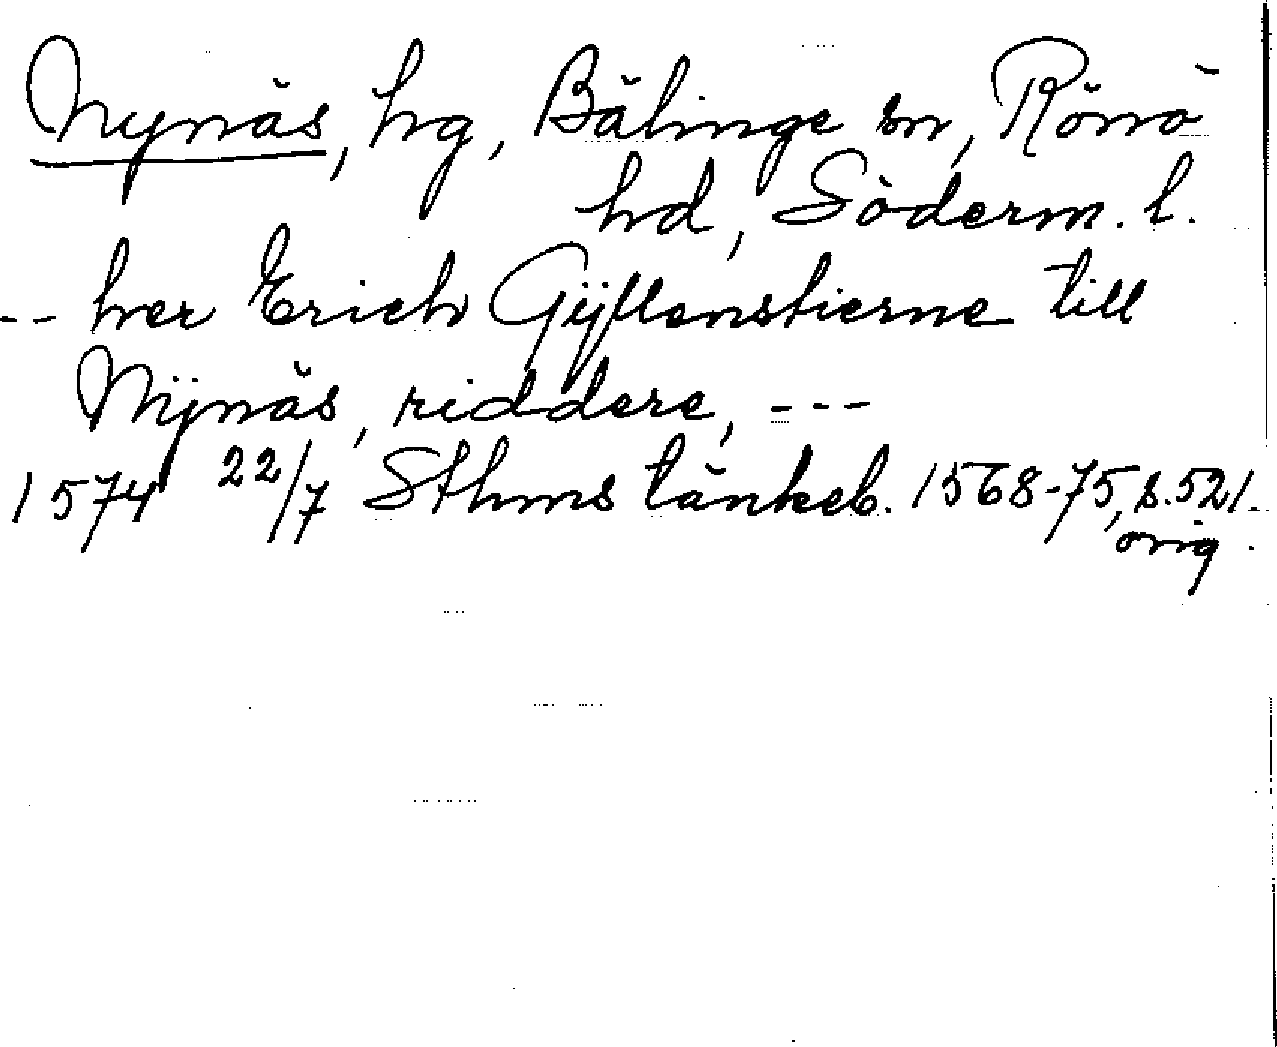 Nynäs, hg, Bälinge sn, Rönö
hd, Söderm. l.
-- her Erich Gÿllenstierne till
Nÿnäs, riddere, ---
1574 22/7 Sthms tänkeb. 1568-75, s. 521.
orig.